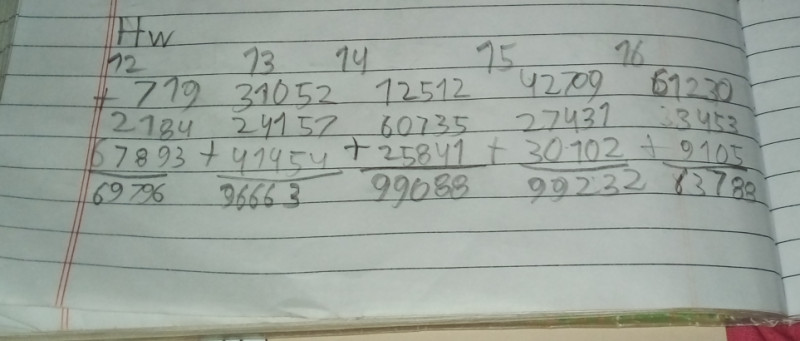 Hw
12 13 14 15 16
+ 719 31052 12512 42709 61230
2184 24157 60735 27431 33453
67893 + 41454 + 25841 + 30102 + 9105
69796 96663 99088 99232 83788